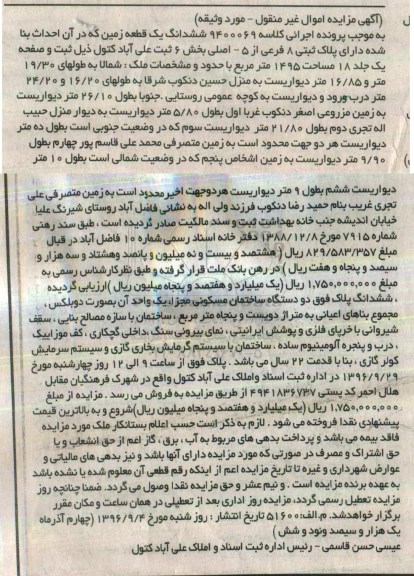 (آگهی مزایده اموال غیر منقول - مورد وثیقه)
به موجب پرونده اجرائی کلاسه ۹۴۰۰۰۶۹ ششدانگ یک قطعه زمین که در آن احداث بنا
شده دارای پلاک ثبتی ۸ فرعی از ۵ - اصلی بخش ۶ ثبت علی آباد کتول ذیل ثبت و صفحه
یک جلد ۱۸ مساحت ۱۴۹۵ متر مربع با حدود و مشخصات ملک : شمالا به طولهای ۱۹/۳۰
متر و ۱۶/۸۵ متر دیواریست به منزل حسین دنکوب شرقا به طولهای ۱۶/۲۰ و ۲۴/۲۰
متر درب ورود و دیواریست به کوچه عمومی روستایی .جنوبا بطول ۲۶/۱۰ متر دیواریست
به زمین مزروعی اصغر دنکوب غربا اول بطول ۵/۸۰ متر دیواریست به دیوار منزل حبیب
اله تجری دوم بطول ۲۱/۸۰ متر دیواریست سوم که در وضعیت جنوبی است بطول ده متر
دیواریست هر دو جهت محدود است به زمین متصرفی محمد علی قاسم پور چهارم بطول
۹/۹۰ متر دیواریست به زمین اشخاص پنجم که در وضعیت شمالی است بطول ۱۰ متر
دیواریست ششم بطول ۹ متر دیواریست هردوجهت اخیر محدود است به زمین متصرفی علی
تجری غریب بنام حمید رضا دنکوب فرزند ولی اله به نشانی فاضل آباد روستای شیرنگ علیا
خیابان اندیشه جنب خانه بهداشت ثبت و سند مالکیت صادر گردیده است ، طبق سند رهنی
شماره ۷۹۱۵ مورخ ۱۳۸۸/۱۲/۸ دفتر خانه اسناد رسمی شماره ۱۰ فاضل آباد در قبال
مبلغ ۸۲۹/۵۸۳/۳۵۷ ریال (هشتصد و بیست و نه میلیون و پانصد وهشتاد و سه هزار و
سیصد و پنجاه و هفت ریال ) در رهن بانک ملت قرار گرفته و طبق نظر کارشناس رسمی به
مبلغ ۱,۷۵۰,۰۰۰,۰۰۰ ریال (یک میلیارد و هفتصد و پنجاه میلیون ریال )ارزیابی گردیده
، ششدانگ پلاک فوق دو دستگاه ساختمان مسکونی مجزا،یک واحد آن بصورت دوبلکس ،
مجموع بناهای اعیانی به متراژ دویست و پنجاه متر مربع ، ساختمان با سازه مصالح بنایی ، سقف
شیروانی با خرپای فلزی و پوشش ایرانیتی ، نمای بیرونی سنگ ،داخلی گچکاری ، کف موزاییک
، درب و پنجره آلومینیوم ساده . ساختمان با سیستم گرمایش بخاری گازی و سیستم سرمایش
کولر گازی ، بنا با قدمت ۲۲ سال می باشد . پلاک فوق از ساعت ۹ الی ۱۲ روز چهارشنبه مورخ
۱۳۹۶/۹/۲۹ در اداره ثبت اسناد واملاک علی آباد کتول واقع در شهرک فرهنگیان مقابل
هلال احمر کد پستی ۴۹۴۱۸۳۶۷۳۷ از طریق مزایده به فروش می رسد . مزایده از مبلغ
۱,۷۵۰,۰۰۰,۰۰۰ ریال (یک میلیارد و هفتصد و پنجاه میلیون ریال)شروع و به بالاترین قیمت
پیشنهادی نقدا فروخته می شود . لازم به ذکر است حسب اعلام بستانکار ملک مورد مزایده
فاقد بیمه می باشد و پرداخت بدهی های مربوط به آب ، برق ، گاز اعم از حق انشعاب و یا
حق اشتراک و مصرف در صورتی که مورد مزایده دارای آنها باشد و نیز بدهی های مالیاتی و
عوارض شهرداری و غیره تا تاریخ مزایده اعم از اینکه رقم قطعی آن معلوم شده یا نشده باشد
به عهده برنده مزایده است . و نیم عشر و حق مزایده نقدا وصول می گردد. ضمنا چنانچه روز
مزایده تعطیل رسمی گردد، مزایده روز اداری بعد از تعطیلی در همان ساعت و مکان مقرر
برگزار خواهدشد. م.الف:۵۱۶۰۰ تاریخ انتشار : روز شنبه مورخ ۱۳۹۶/۹/۴ (چهارم آذرماه
یک هزار و سیصد ونود و شش )
عیسی حسن قاسمی - رئیس اداره ثبت اسناد و املاک علی آباد کتول